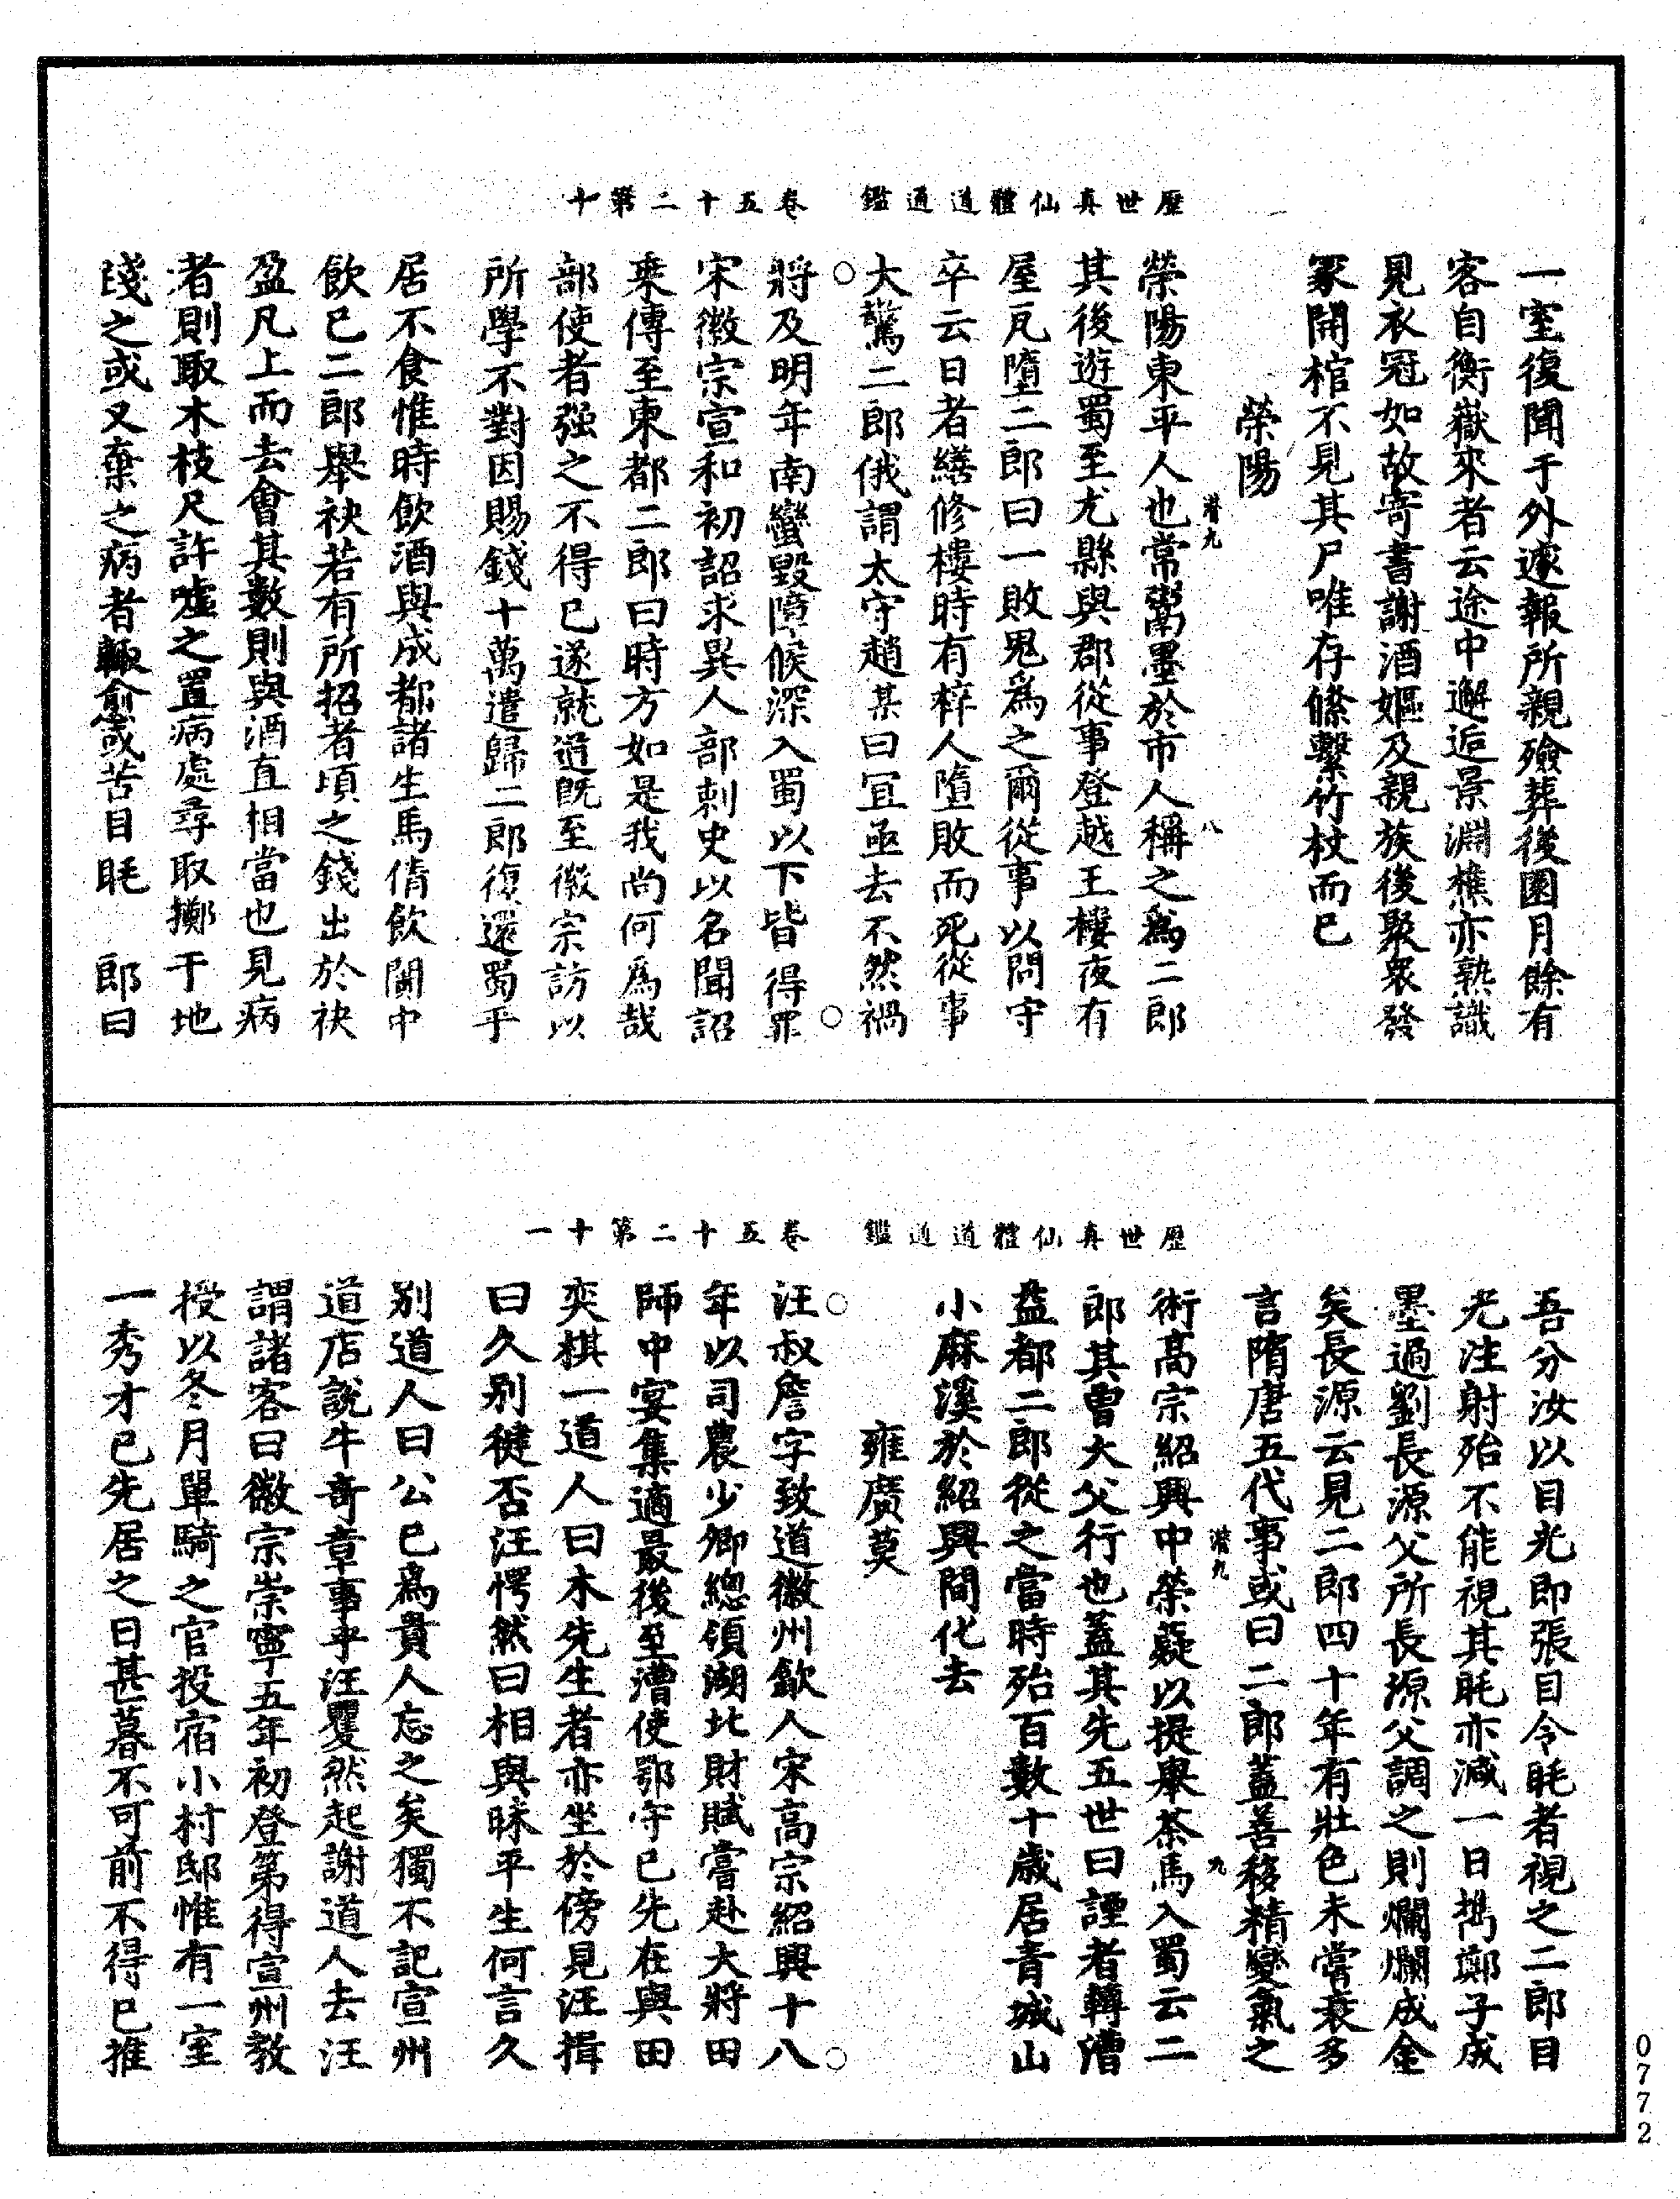 歷世真仙體道通鑑　卷五十二第十
一室復聞于外遽報所親殮葬後園月餘有
客自衡嶽來者云途中邂逅景淵樵亦熟識
見衣冠如故寄書謝酒嫗及親族後聚衆發
冢開棺不見其尸唯存絛繫竹杖而已
榮陽
榮陽東平人也常鬻墨於市人稱之爲二郎
其後遊蜀至尤縣與郡從事登越王樓夜有
屋瓦墮二郎曰一敗鬼爲之爾從事以問守
卒云日者繕修樓時有梓人墮敗而死從事
大驚二郎俄謂太守趙某曰宜亟去不然禍
將及明年南蠻毀障候深入蜀以下皆得罪
宋徽宗宣和初詔求異人部刺史以名聞詔
乘傳至東都二郎曰時方如是我尚何爲哉
部使者强之不得已遂就道旣至徽宗訪以
所學不對因賜錢十萬遣歸二郎復還蜀乎
居不食惟時飲酒與成都諸生馬倩飲闤中
飲已二郎舉袂若有所招者頃之錢出於袂
盈凡上而去會其數則與酒直相當也見病
者則取木枝尺許噓之置病處尋取擲于地
踐之或又棄之病者輒愈或苦目眊　郎曰
歷世真仙體道通鑑　卷五十二第十一
吾分汝以目光即張目令眊者視之二郎目
光注射殆不能視其眊亦減一日擕鄭子成
墨過劉長源父所長源父調之則爛爛成金
矣長源云見二郎四十年有壯色未嘗衰多
言隋唐五代事或曰二郎蓋善移精變氣之
術高宗紹興中榮薿以提舉茶馬入蜀云二
郎其曾大父行也蓋其先五世曰諲者轉漕
益都二郎從之當時殆百數十歲居青城山
小麻溪於紹興間化去
雍廣莫
汪叔詹字致道徽州歙人宋高宗紹興十八
年以司農少卿總領湖北財賦嘗赴大將田
師中宴集適最後至漕使鄂守已先在與田
奕棋一道人曰木先生者亦坐於傍見汪揖
曰久別健否汪愕然曰相與昧平生何言久
別道人曰公已爲貴人忘之矣獨不記宣州
道店說牛奇章事乎汪矍然起謝道人去汪
謂諸客曰徽宗崇寧五年初登第得宣州教
授以冬月單騎之官投宿小村邸惟有一室
一秀才已先居之日甚暮不可前不得已推
八
九
0772